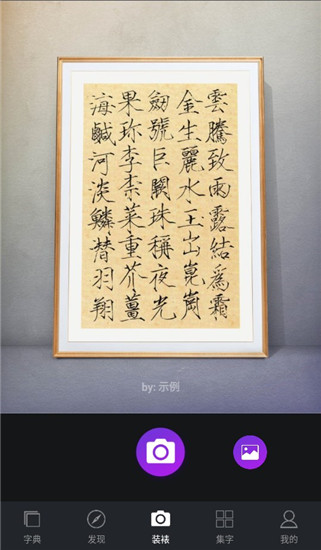 雲騰致雨露結爲霜
金生麗水玉出崑崗
劒號巨闕珠稱夜光
果珍李柰菜重芥薑
海鹹河淡鱗潛羽翔
by: 示例
字典 发现 装裱 集字 我的